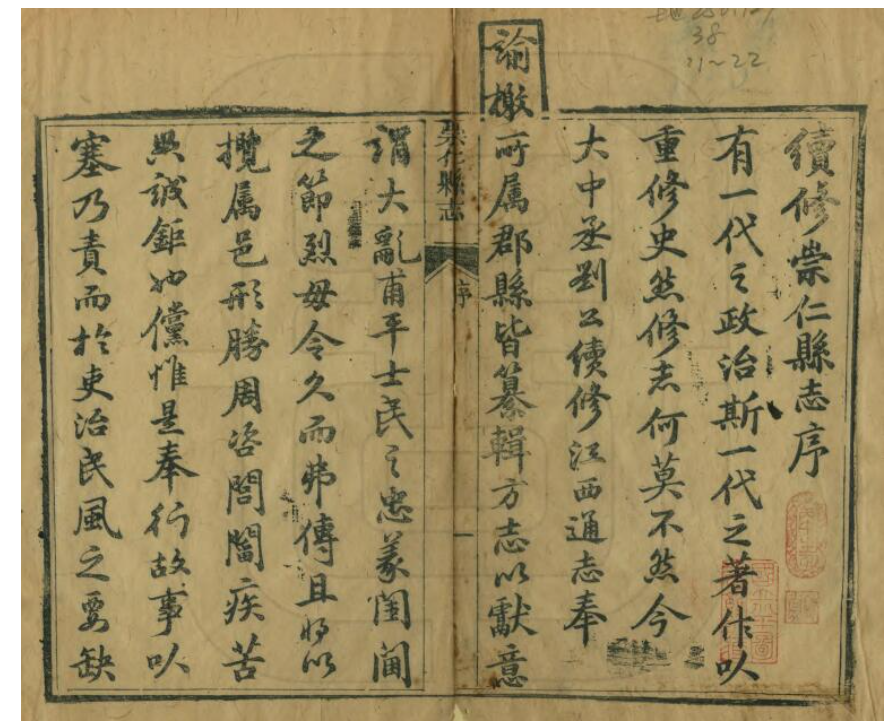 續修崇仁縣志序
有一代之政治斯一代之著作以
重修史然修志何莫不然今
大中丞劉公續修江西通志奉
諭檄所属郡縣皆纂輯方志以獻意
崇仁縣志
序
一
謂大亂甫平士民之忠義閨閫
之節烈毋令久而弗傳且將以
攬属邑形勝周咨閭閻疾苦
典誠鉅也儻惟是奉行故事以
塞乃責而於吏治民風之要缺
38
21~22